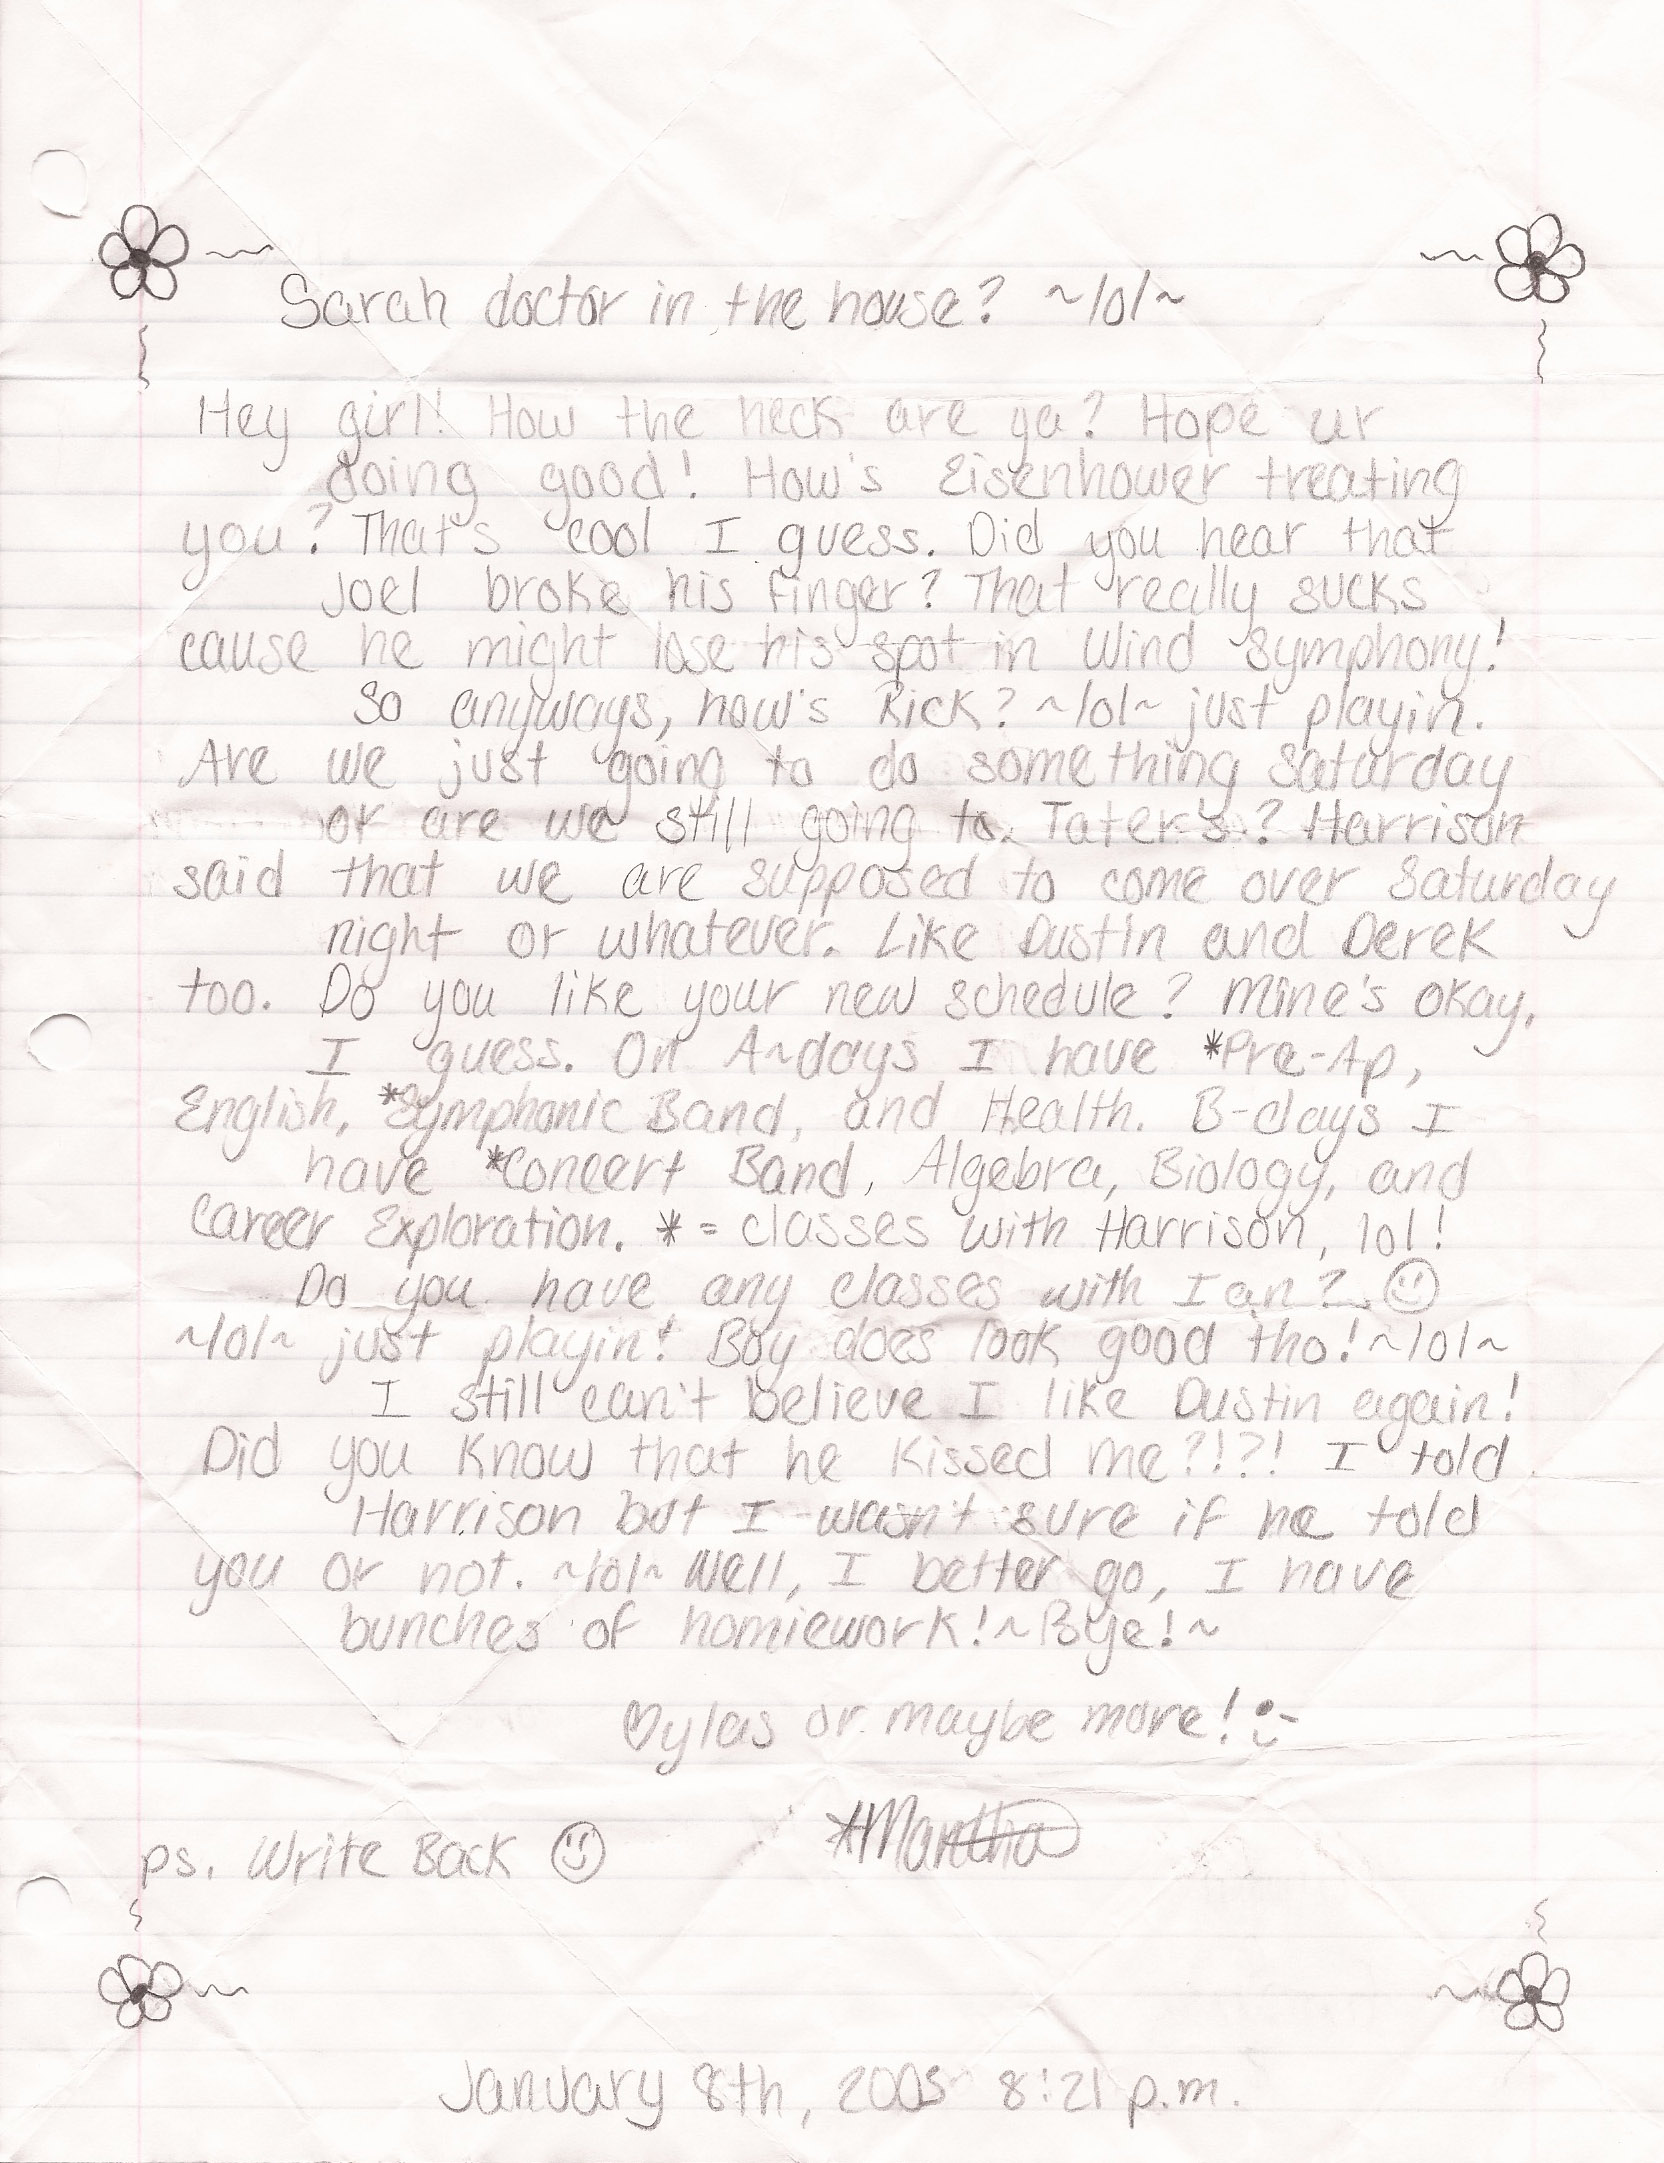 Sarah doctor in the house? ~lol~
Hey girl! How the heck are ya? Hope ur
doing good! How's Eisenhower treating
you? That's cool I guess. Did you hear that
Joel broke his finger? That really sucks
cause he might lose his spot in Wind Symphony!
So anyways, how's Rick? ~lol~ just playin.
Are we just going to do something Saturday
or are we still going to Tater's? Harrison
said that we are supposed to come over Saturday
night or whatever. Like Dustin and Derek
too. Do you like your new schedule? Mine's okay,
I guess. On A~days I have *Pre-Ap,
English, *Symphonic Band, and Health. B-days I
have *Concert Band, Algebra, Biology, and
Career Exploration. * = classes with Harrison, lol!
Do you have any classes with Ian? ☺
~lol~ just playin! Boy does look good tho! ~lol~
I still can't believe I like Dustin again!
Did you know that he kissed me?!?! I told
Harrison but I wasn't sure if he told
you or not. ~lol~ Well, I better go, I have
bunches of homiework! ~Bye!~
♡ylas or maybe more! ;-
*Mantha
ps. Write Back ☺
January 8th, 2003 8:21 p.m.